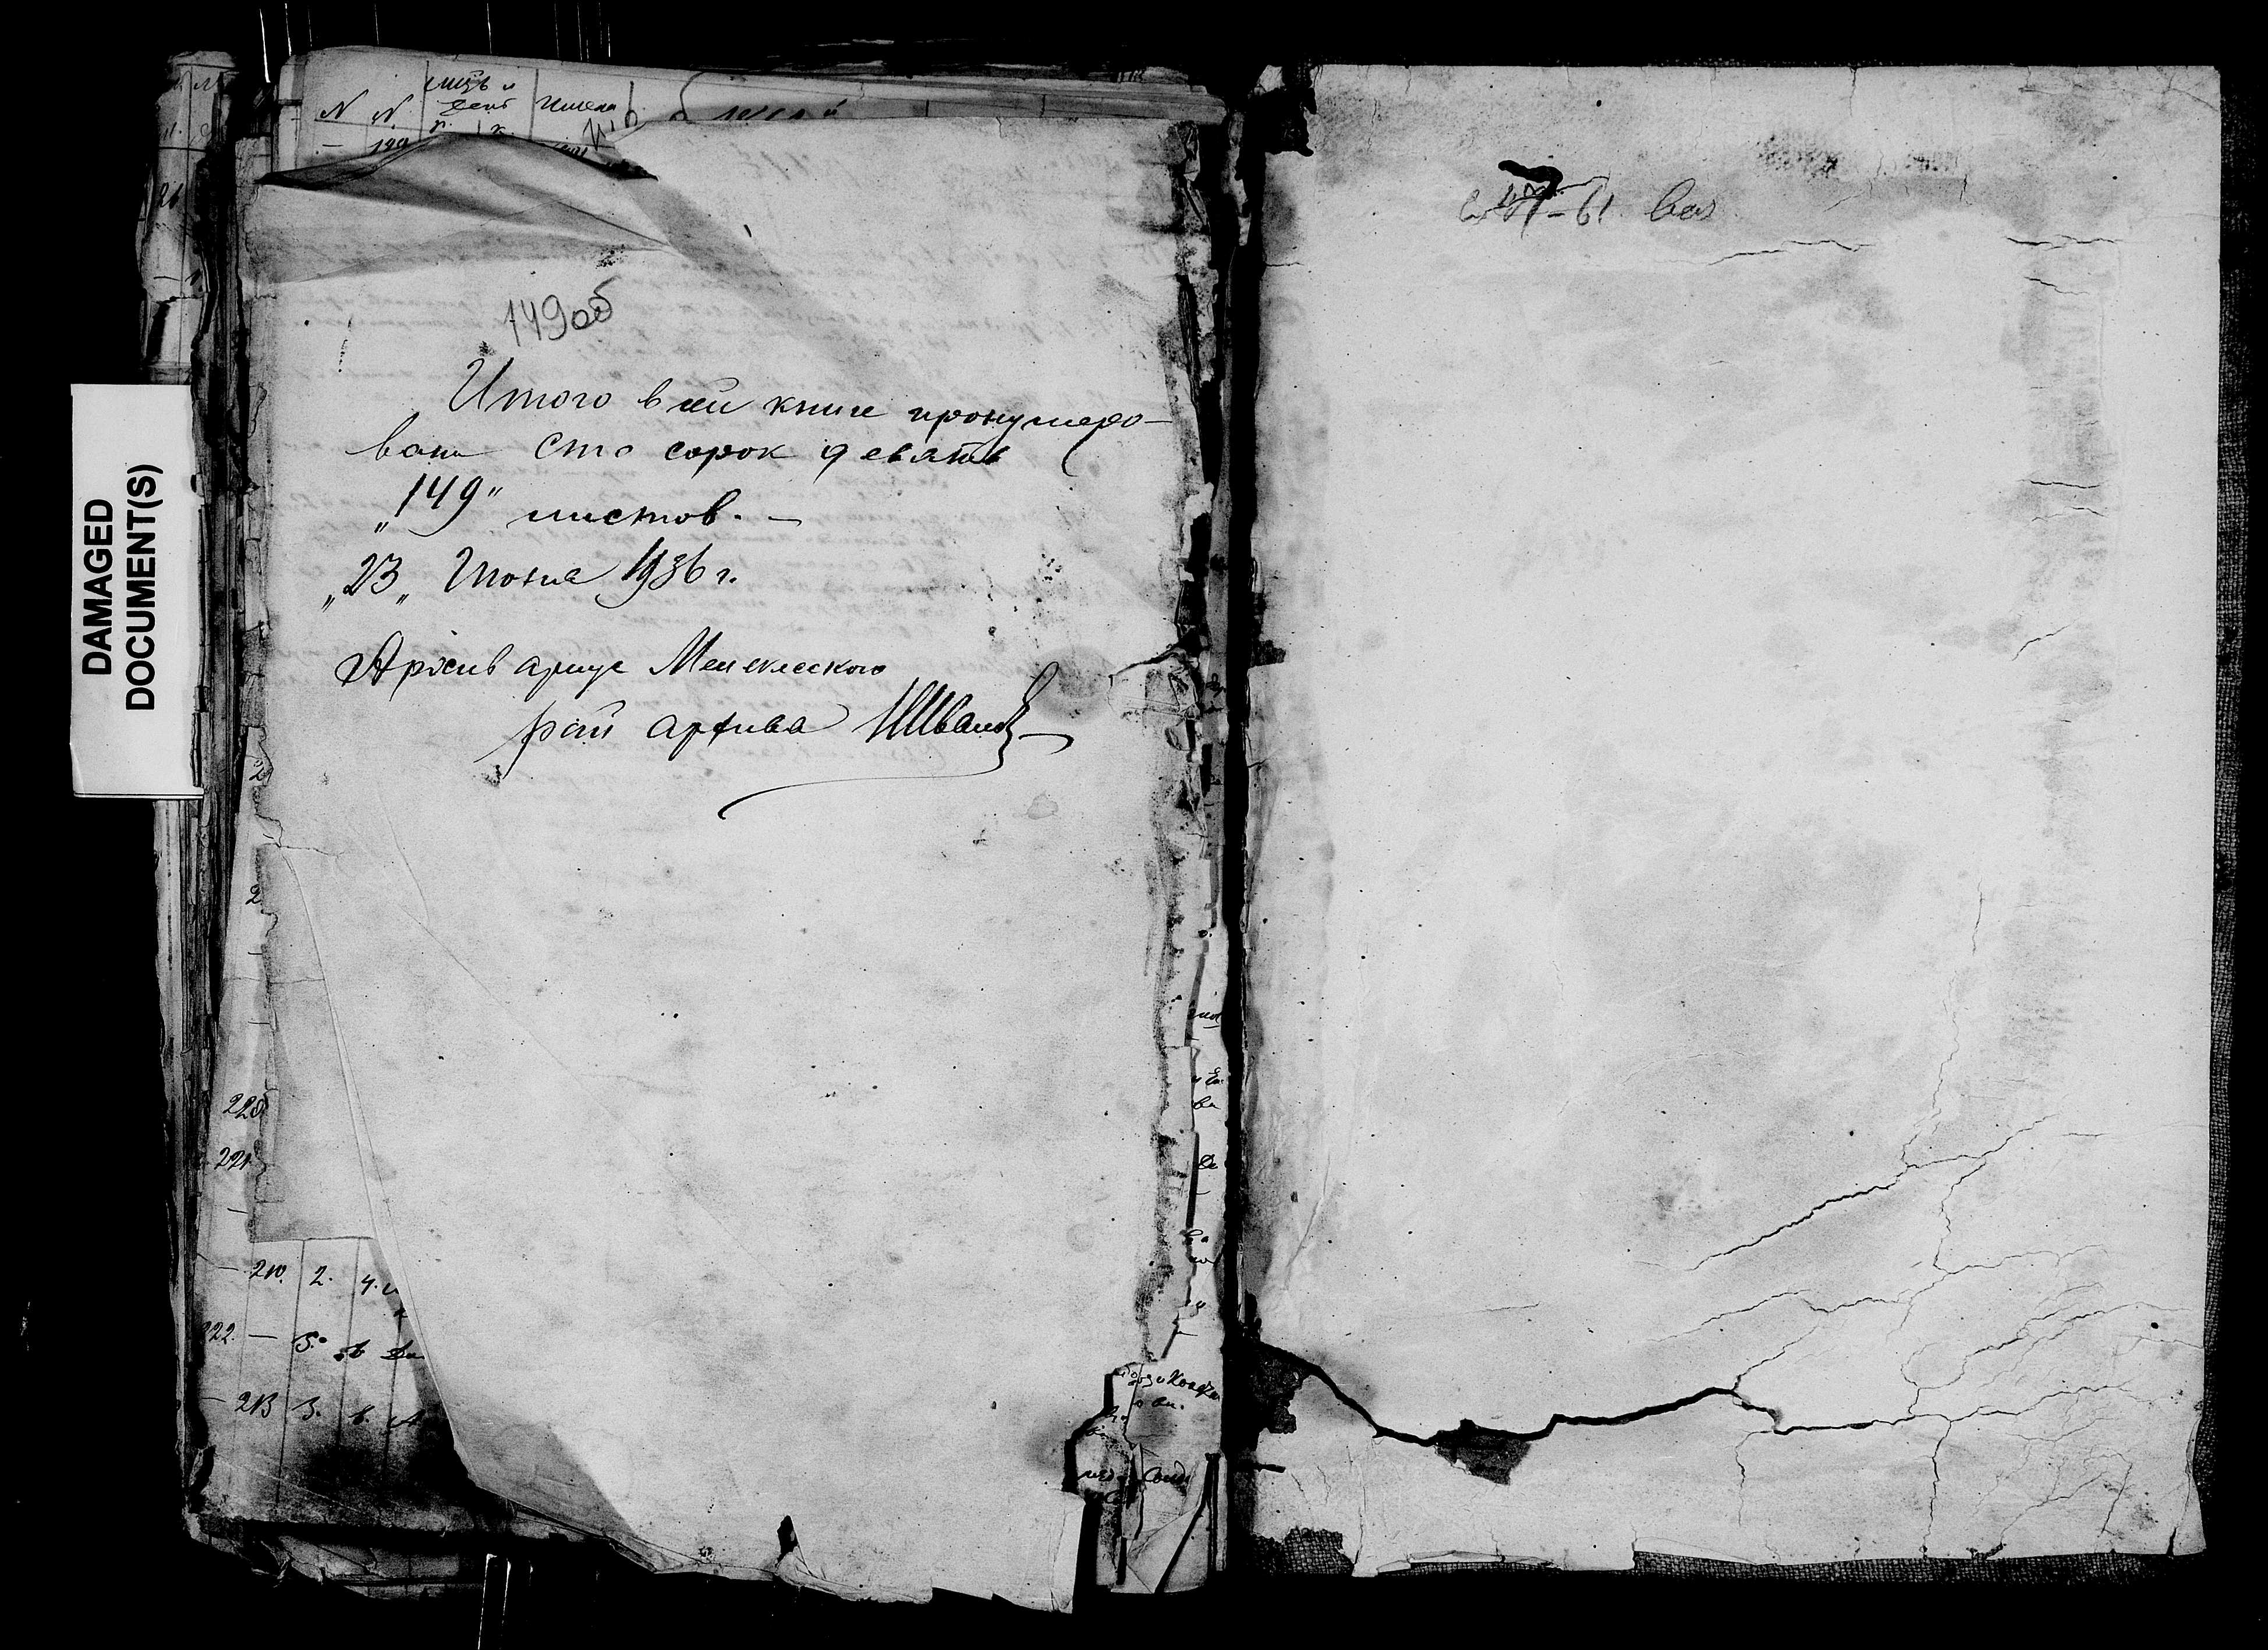 DAMAGED
DOCUMENT(S)
N N
149об
Итого в сей книге пронумеро-
вано сто сорок девять
„149" листов. —
„23„ Июня 1936 г.
Архивариус Мелекесского
рай архива
2
2
220
221
210. 2. 4.
222. — 5.
213 3. 6.
-61